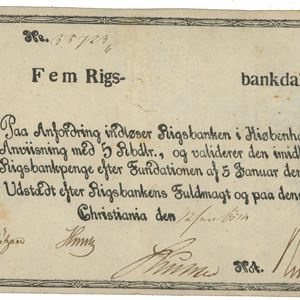 No. 35723
Fem Rigs- bankdal
Paa Anfordring indløser Rigsbanken i Kiøbenha
Anviisning med 5 Rbdlr., og validerer den imidl
Rigsbankpenge efter Fundationen af 5 Januar de
Udstædt efter Rigsbankens Fuldmagt og paa dens
Christiania den 12 Juni 1814
Not.